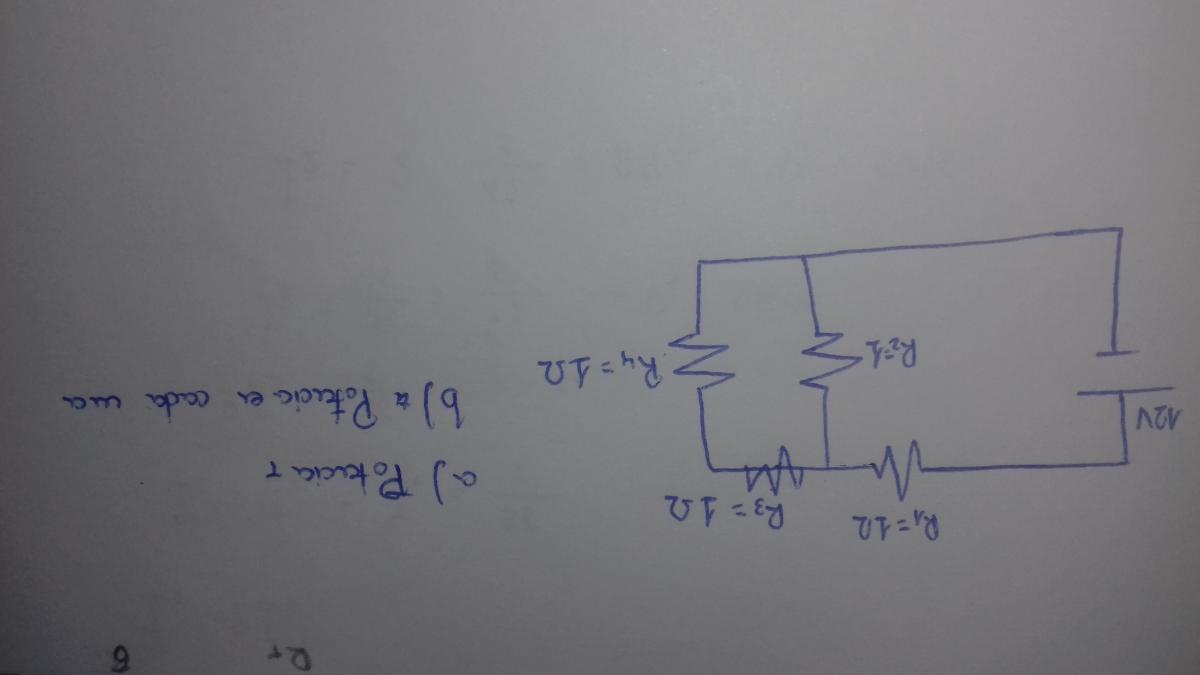 R1=1Ω
R3=1Ω
12V
R2=1
R4=1Ω
a) Potencia T
b) Potencia en cada una
RT
6